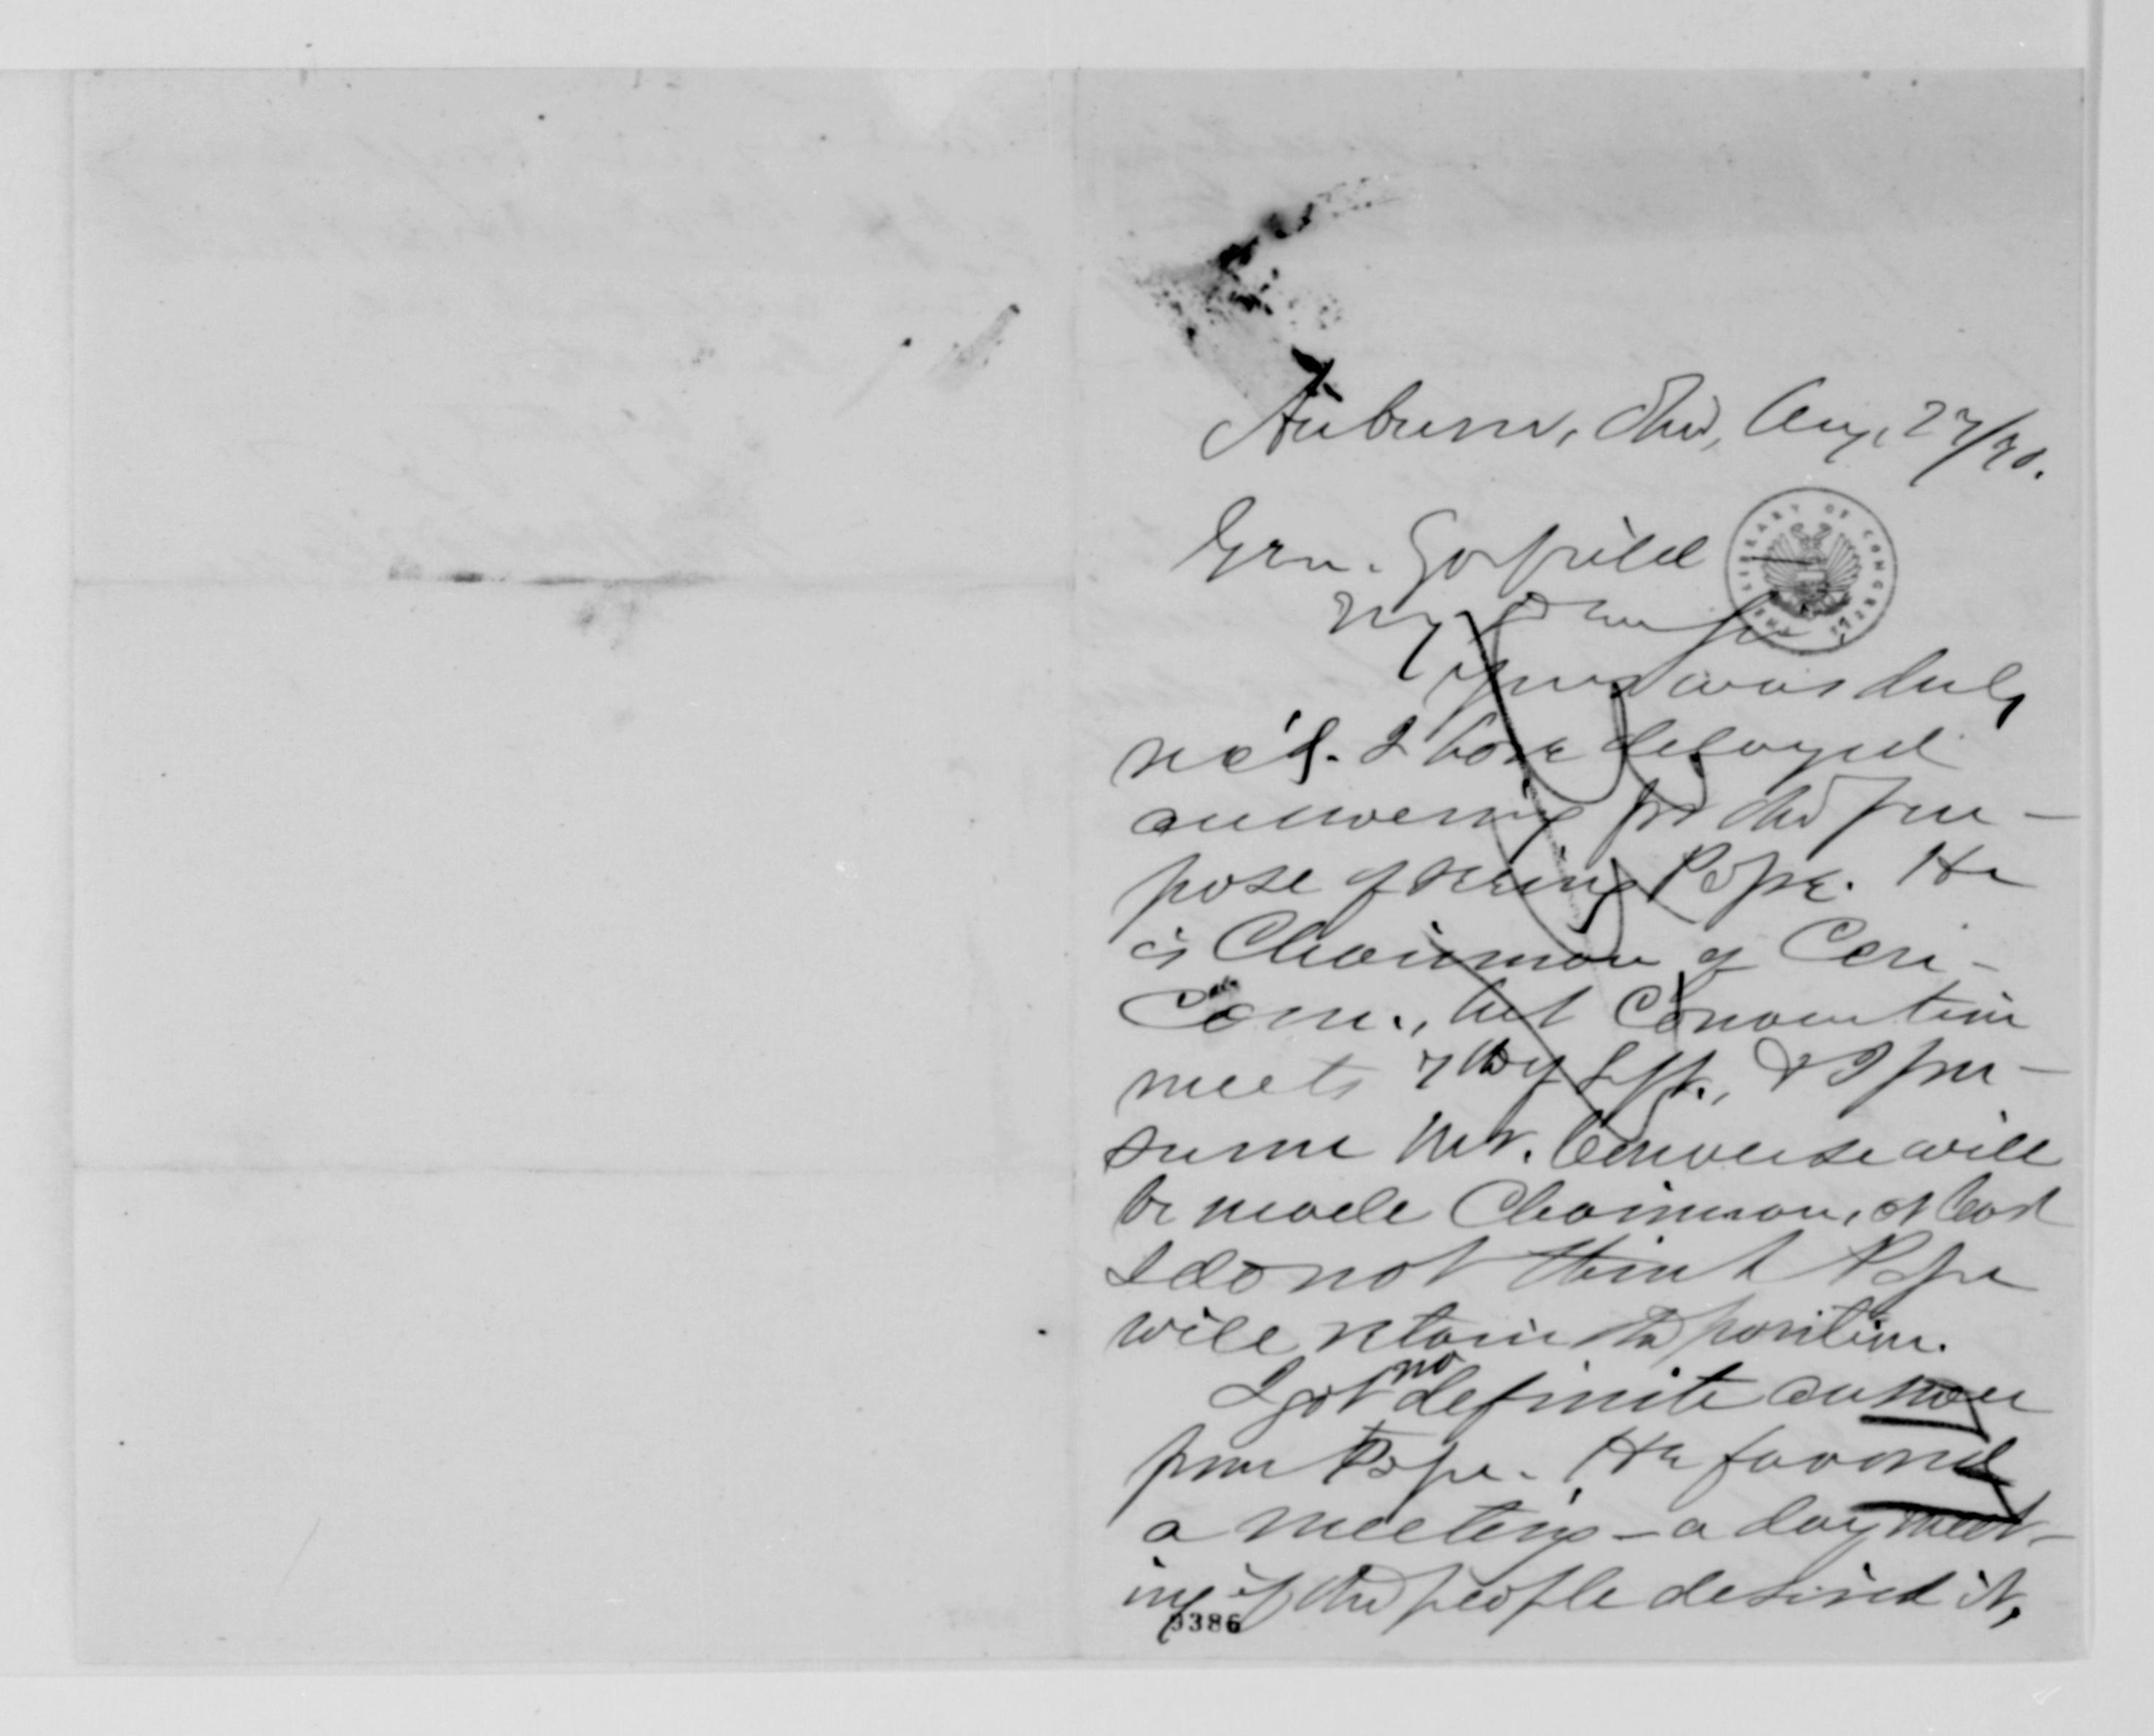 Auburn, Ohio, Aug. 27/70.
Gen. Garfield
My Dear Sir,
Yours was duly
rec'd. I have delayed
answering for the pur-
pose of seeing Pope. He
is Chairman of Cen-
Com., but Convention
meets 7th of Sept., & I pre-
sume Mr. Converse will
be made Chairman, at least
I do not think Pope
will retain the position.
I got no definite answer
from Pope. He favored
a meeting - a day meet-
ing if the people desired it,
THE LIBRARY OF CONGRESS
9386